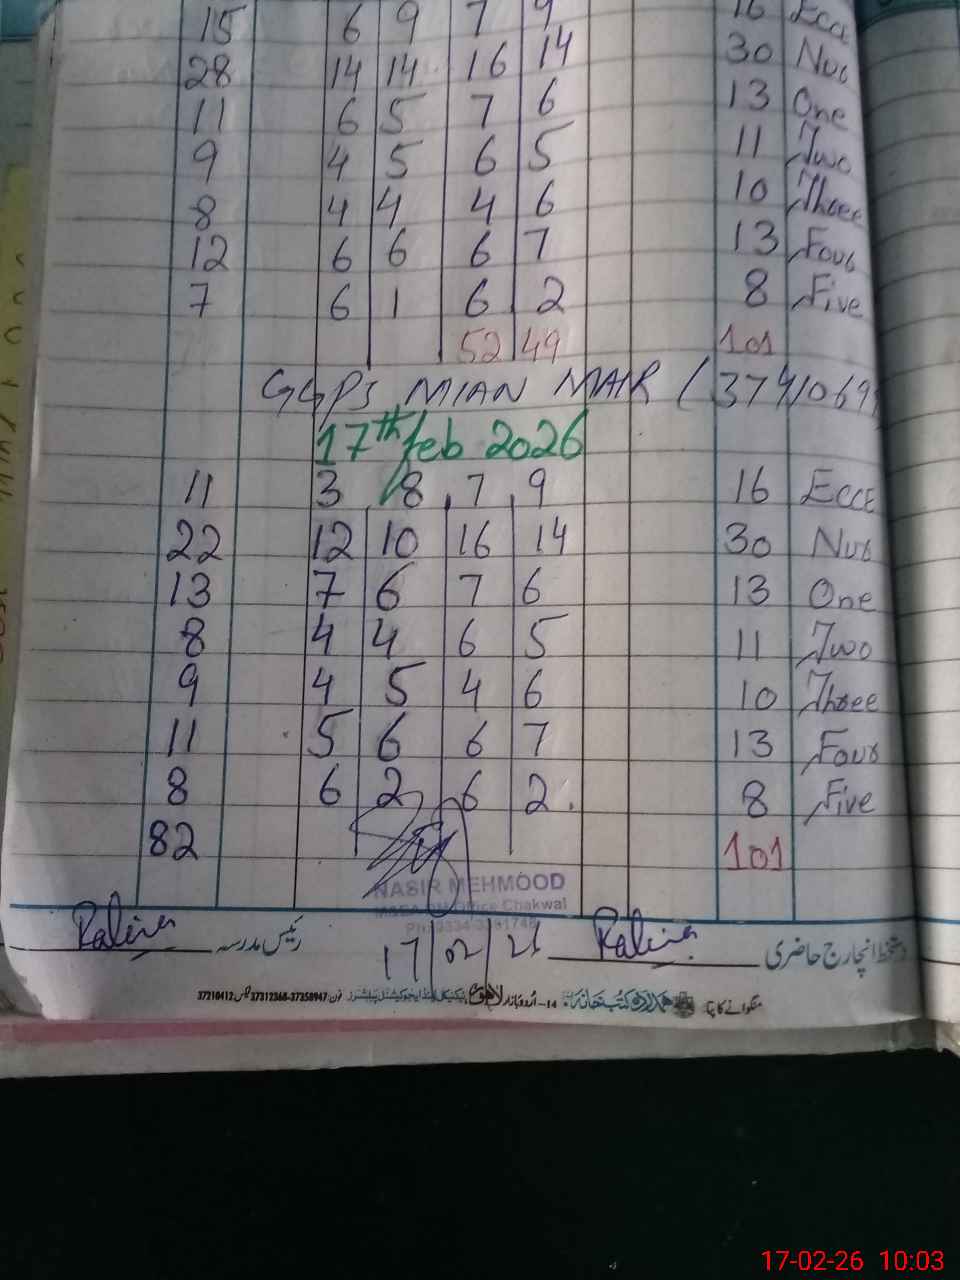 15 6 9 7 9 16 Ecce
28 14 14 16 14 30 Nur
11 6 5 7 6 13 One
9 4 5 6 5 11 Two
8 4 4 4 6 10 Three
12 6 6 6 7 13 Four
7 6 1 6 2 8 Five
52 49 101
GGPS MIAN MAIR (
17th feb 2026
11 3 8 7 9 16 ECCE
22 12 10 16 14 30 Nur
13 7 6 7 6 13 One
8 4 4 6 5 11 Two
9 4 5 4 6 10 Three
11 5 6 6 7 13 Four
8 6 2 6 2 8 Five
82 101
NASIR MEHMOOD
Office Chakwal
دستخط انچارج حاضری 17/02/26 رئیس مدرسہ
منگوانے کا پتہ: ہمدرد کتب خانہ 14-اردو بازار لاہور فون: 37358947-37312368 فیکس: 37210412
17-02-26 10:03